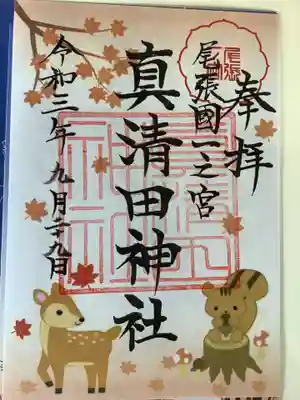 奉拝
尾張國一之宮
真清田神社
令和三年 九月十九日